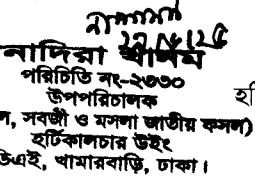 নাদিরা খানম
পরিচিতি নং-২৩৩০
উপপরিচালক
হ
ল, সবজী ও মসলা জাতীয় ফসল)
হর্টিকালচার উইং
ডিএই, খামারবাড়ি, ঢাকা।